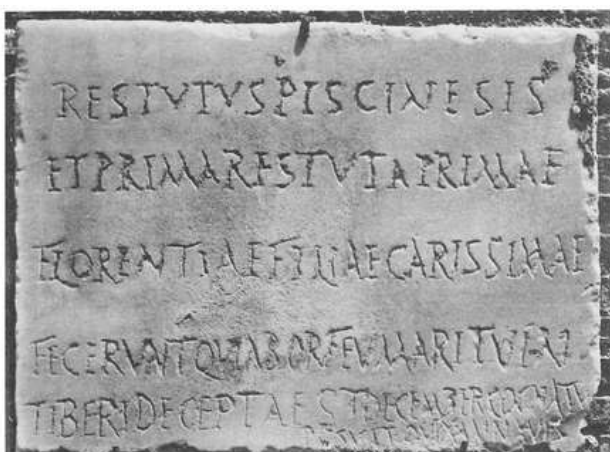 RESTVTVSPISCINESIS
ETPRIMARESTVTAPRIMAE
FLORENTIAEFILIAECARISSIMAE
FECERVNTQVIABORFEVMARITV
TIBERIDECEPTAESTDECEMBERCOGNATV
POSVIT